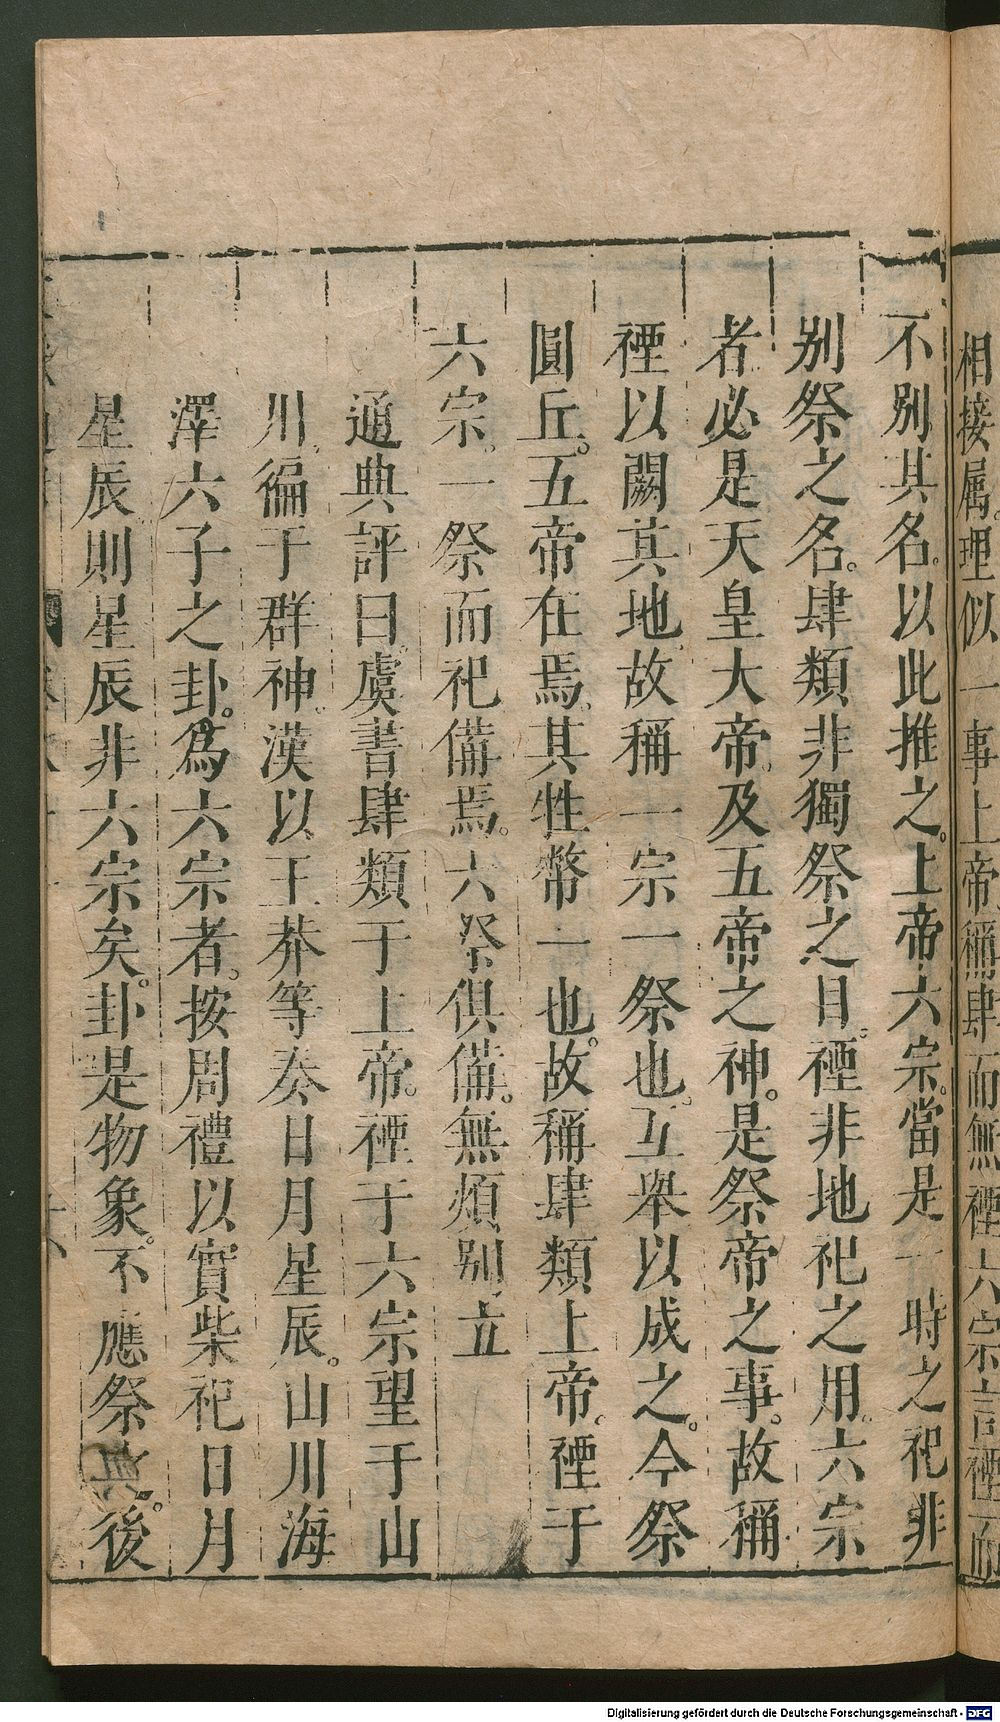 相接屬理似一事上帝稱肆而無禋六宗言禋而
不別其名以此推之上帝六宗當是一時之祀非
別祭之名肆類非獨祭之目禋非地祀之用六宗
者必是天皇大帝及五帝之神是祭帝之事故稱
禋以闕其地故稱一宗一祭也互舉以成之今祭
圓丘五帝在焉其牲幣一也故稱肆類上帝禋于
六宗一祭而祀備焉六祭俱備無煩別立
通典評曰虞書肆類于上帝禋于六宗望于山
川徧于群神漢以王莽等奏日月星辰山川海
澤六子之卦為六宗者按周禮以實柴祀日月
星辰則星辰非六宗矣卦是物象不應祭典後
Digitalisierung gefördert durch die Deutsche Forschungsgemeinschaft - DFG